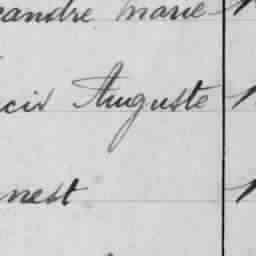 eandre Marie
cis Auguste
nest